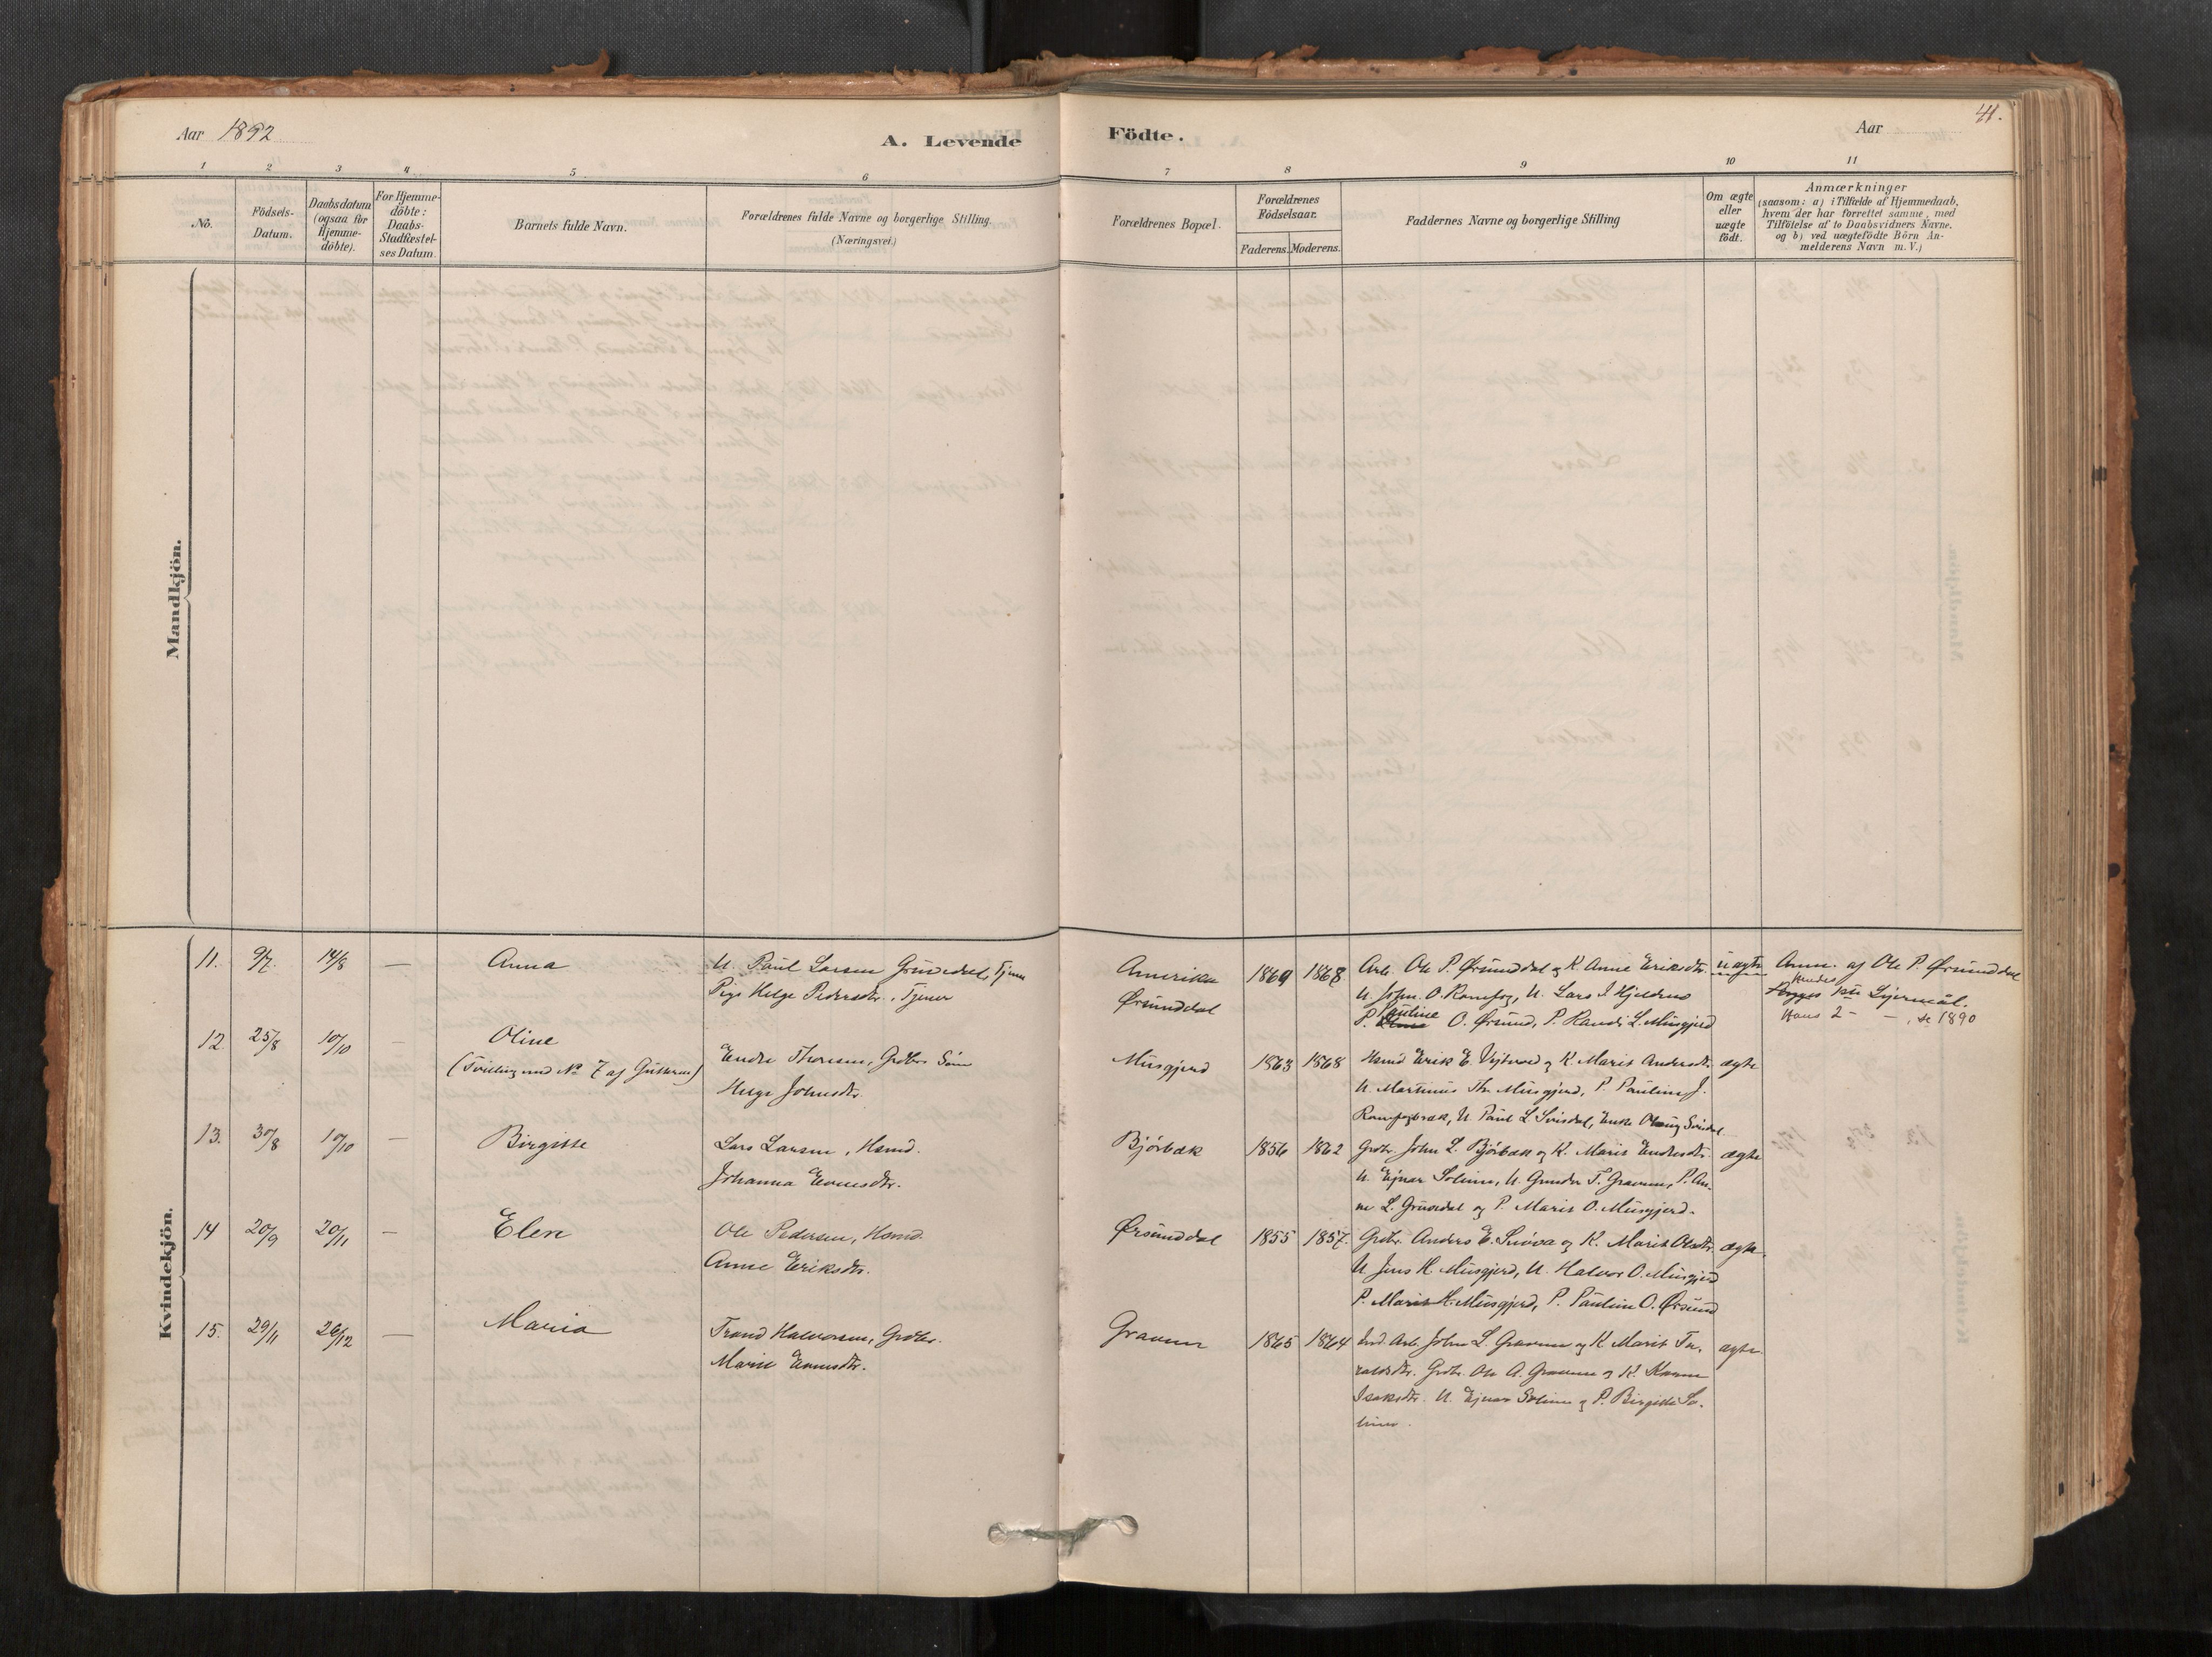 Aar 1892
A. Levende
Födte.
Aar
41.
1 2 3 4 5 6 7 8 9 10 11
No.
Födsels-Datum.
Daabsdatum (ogsaa for Hjemme-döbte).
For Hjemme-döbte: Daabs-Stadfæstel-ses Datum.
Barnets fulde Navn.
Forældrenes fulde Navne og borgerlige Stilling.
(Næringsvei.)
Forældrenes Bopæl.
Forældrenes Födselsaar.
Faderens. Moderens.
Faddernes Navne og borgerlige Stilling
Om ægte eller uægte födt.
Anmærkninger
(saasom: a) i Tilfælde af Hjemmedaab,
hvem der har forrettet samme, med
Tilföielse af to Daabsvidners Navne.
og b) ved uægtefödte Börn An-
melderens Navn m. V.)
Mandkjön.
Kvindekjön.
11. 9/7. 14/8 — Anna
U. Paul Larsen Grinedal, Tjener
Pige Helge Pedersdtr., Tjener
Amerika
Ørsunddal
1869 1868
Arb. Ole P. Ørsunddal og K. Anne Eriksdtr.
U. John O. Ramsøg, U. Lars J. Hjeldnes
P. Pauline O. Ørsund, P. Randi L. Musgjerd
uægte
Anm. af Ole P. Ørsunddal
Hendes 1ste Leiermål.
Hans 2 - - , se 1890
12. 25/8 10/10 — Oline
(Tvilling med No 7 af Guttene)
Endre Thoresen, Grdbr. Søn
Helge Johnsdtr.
Musgjerd
1863 1868
Hsmd Erik E. og K. Marit Andersdtr.
U. Martinus Th. Musgjerd, P. Pauline J.
U. Paul L. Svisdal, Enke Svisdal
ægte
13. 30/8 10/10 — Birgitte
Lars Larsen, Hsmd.
Johanna Evensdtr.
Bjørbæk
1856 1862
Grdbr. John L. Bjørbæk og K. Marit Endresdtr.
U. Ejnar Solimn, U. Gunder T. Gravem, P. An-
ne L. Grinedal og P. Marit O. Musgjerd.
ægte
14 20/9 20/11 — Elen
Ole Pedersen, Hsmd.
Anne Eriksdtr.
Ørsunddal
1855 1857.
Grdbr. Anders E. Snøva og K. Marit Olsdtr.
U Jens H. Musgjerd, U. Halvor O. Musgjerd
P. Marit H. Musgjerd, P. Pauline O. Ørsund
ægte.
15. 29/11 26/12 — Maria
Trond Halvorsen, Grdbr.
Marit Evensdtr.
Gravem
1865 1864
Ind. Arb. John L. Gravem og K Marit To-
raldsdtr. Grdbr. Ole A. Gravem og K. Karen
Isaksdtr. U. Ejnar Solimn og P. Birgitte So-
limn.
ægte.